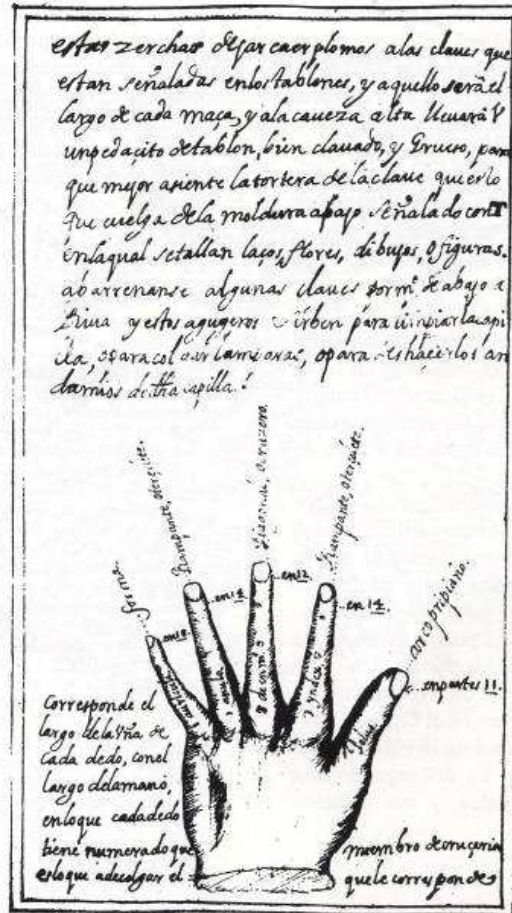 estas zerchas dejar caer plomos a las claves que
estan señaladas enlos tablones, y aquello será el
largo de cada maça, y ala caveza alta llevará
un pedaçito de tablon, bien clavado, y Grueso, para
que mejor asiente la tortera de la clave que es lo
que cuelga de la moldura abajo señalado con T
en la qual se tallan laços, flores, dibujos, o figuras.
abarrenanse algunas claves por m.º de abajo a
Riva y estos agugeros sirben para limpiar la capi
lla, o para colgar lamparas, o para deshacer los an
damios de dha capilla.
Rampante, o terçiete.
Diagonal, o cruzero.
Rampante, o terçiete.
forma.
arco pripiaño.
en 10.
en 14.
en 12.
en 14.
en partes 11.
auricular
anular
8 de enm.º
7 yndex
Salus
Corresponde el
largo de la Vña de
cada dedo, con el
largo de la mano,
en lo que cada dedo
tiene numerado que
es lo que a de colgar el
miembro de cruçeria
que le corresponde